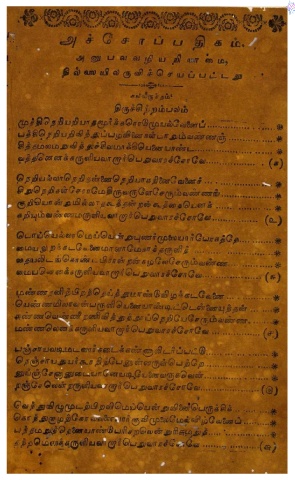 அச்சோப்பதிகம்.
அனுபவவழியறியாமை,
தில்லையிலருளிச்செய்யப்பட்டது
கலிவிருத்தம்
திருச்சிற்றம்பலம்
முத்திநெறியறியாதமூர்க்கரொடுமுயல்வேனைப்
பத்திநெறியறிவித்துப்பழவினைகள்பாறும்வண்ணஞ்
சித்தமலமறுவித்துச்சிவமாக்கியெனையாண்ட
வத்தனெனக்கருளியவாறார்பெறுவாரச்சோவே. (க)
நெறியல்லாநெறிதன்னைநெறியாகநினைவேனைச்
சிறுநெறிகள்சேராமேதிருவருளேசேரும்வண்ணங்
குறியொன்றுமில்லாதகூத்தன்றன்கூத்தையெனக்
கறியும்வண்ணமருளியவாறார்பெறுவாரச்சோவே. (உ)
பொய்யெல்லாமெய்யென்றுபுணர்முலையார்போகத்தே
மையலுறக்கடவேனைமாளாமேகாத்தருளித்
தையலிடங்கொண்டபிரான்றன்கழலேசேரும்வண்ண
மையனெனக்கருளியவாறார்பெறுவாரச்சோவே. (ங)
மண்ணதனிற்பிறந்தெய்த்துமாண்டுவிழக்கடவேனை
யெண்ணமிலாவன்பருளியெனையாண்டிட்டென்னையுந்தன்
சுண்ணவெண்ணீறணிவித்துத்தூநெறியேசேரும்வண்ண
மண்ணலெனக்கருளியவாறார்பெறுவாரச்சோவே. (ச)
பஞ்சாயவடிமடவார்கடைக்கண்ணாலிடர்ப்பட்டு
நெஞ்சாயதுயர்கூரநிற்பேனுன்னருள்பெற்றே
னுய்ஞ்சேனானுடையானேயடியேனைவருகவென்
றஞ்சேலென்றருளியவாறார்பெறுவாரச்சோவே. (ரு)
வெந்துவிழுமுடற்பிறவிமெய்யென்றுவினைபெருக்கிக்
கொந்துகுழற்கோல்வளையார்குவிமுலைமேல்வீழ்வேனைப்
பந்தமறுத்தெனையாண்டு
தந்தமெனக்கருளியவாறார்பெறுவாரச்சோவே. (சு)